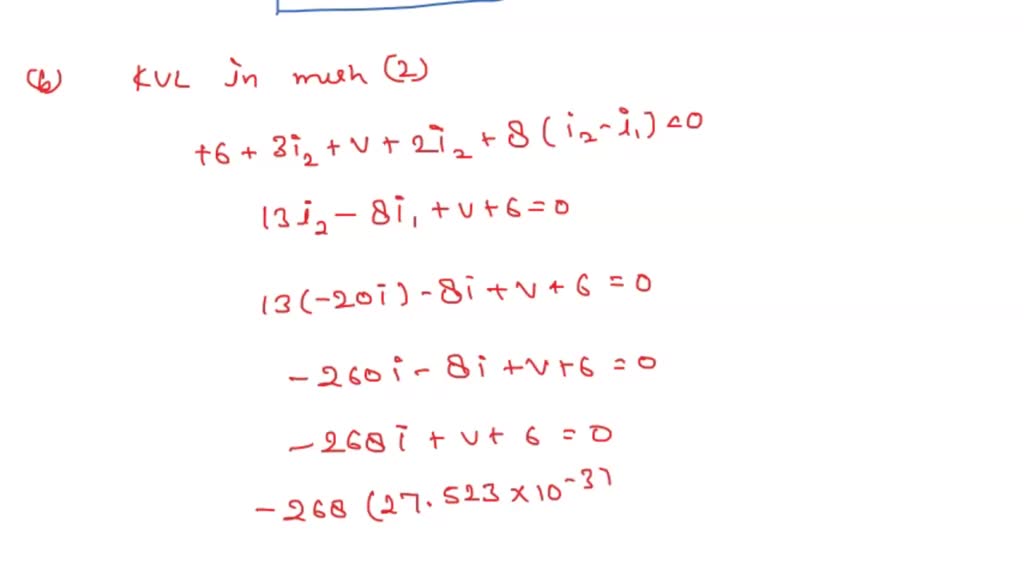 (b) KVL in mesh (2)
+6 + 3i₂ + v + 2i₂ + 8(i₂ - i₁) = 0
13i₂ - 8i₁ + v + 6 = 0
13(-20i) - 8i + v + 6 = 0
-260i - 8i + v + 6 = 0
-268i + v + 6 = 0
-268 (27.523 × 10⁻³)